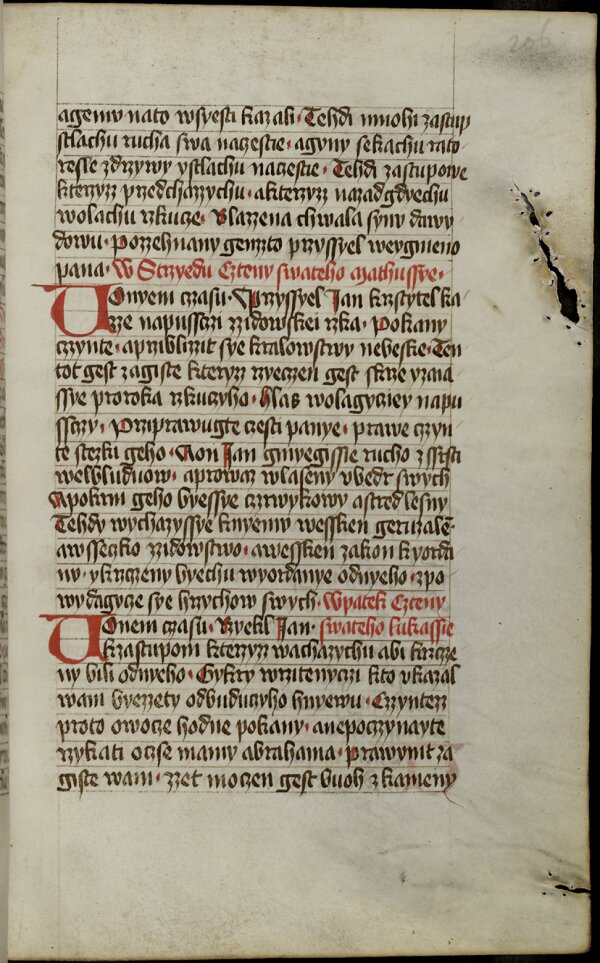 206
agemu nato wsyesti kazali · Tehdi mnohi zastup
stlachu rucha swa naczestie · agyny sekachu rato-
resse zdrzywy ystlachu naczestie · Tehdi zastupowe
kterzyz przedchazychu · akterzyz nazadgdyechu
wolachu rzkucze · Blazena chwala synu dawy-
dowu · Pozehnany genzto przyssyel weygmeno
pana · W Strzyedu Czteny swateho Mathussye ·
Uonyem czasu · Przyssyel Jan krzstytel ka-
zze napusstzi zzidowskei rzka · Pokany
czynte · aprziblizit sye kralowstwy nebeske · Ten
tot gest zagiste kteryz rzyeczen gest skrze yzaia-
ssye proroka rzkuczyho · Hlas wolagycziey napu-
sstzy · Przyprawugte czesti panye · prawe czyn-
te stezki geho · Aon Jan gmyegissie rucho zssrsti
welbluduow · aprowaz wlaseny vbedr swych
Apokrm geho byessye czrwykowy astred lesny
Tehdy wychazyssye knyemu wessken geruzale-
awsseczko zzidowstwo · awessken zakon kyorda-
nu · ykrzczeny byechu wyordanye odnyeho · zpo-
wydagycze sye hrzychow swych · Wpatek Czteny
Uonem czasu · Rzyekl Jan · swateho lukassie
kzastupom kteryzz wachazychu abi krzcze-
ny bili odnyeho · Gykry wrzitenyczi kto vkazal
wam byezzety odbuduczyho hnyewu · Czyntez
proto owocze hodne pokany · anepoczynayte
rzykati otcse mamy abrahama · prawymt za-
giste wam · zzet moczen gest buoh zkameny